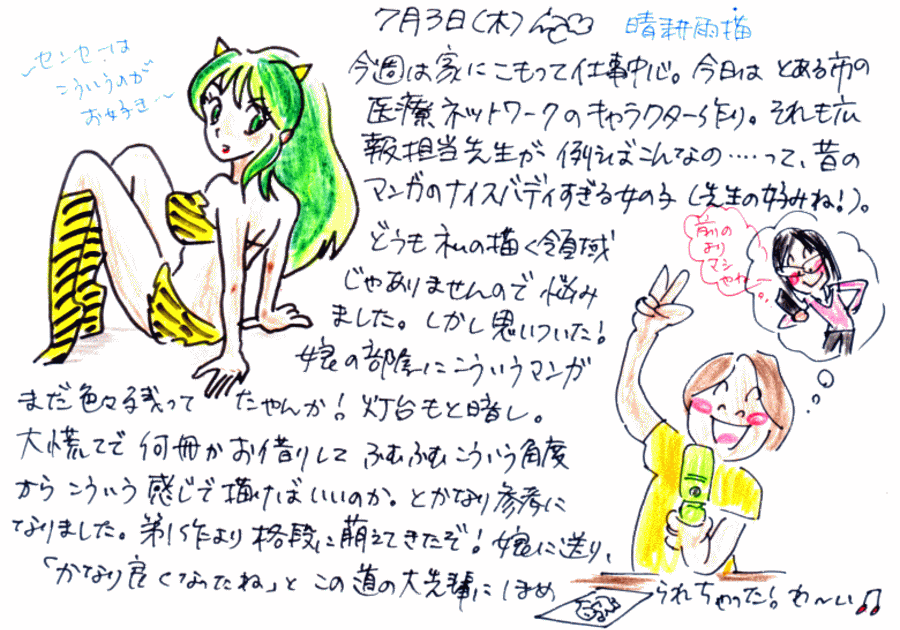 7月3日(木)
晴耕雨描
センセーは
こういうのが
お好き
今週は家にこもって仕事中心。今日は とある市の
医療ネットワークのキャラクター作り。それも広
報担当先生が、例えばこんなの‥‥って、昔の
マンガのナイスバディすぎる女の子(先生の好みね!)。
どうも私の描く領域
じゃありませんので悩み
ました。しかし思いついた!
娘の部屋にこういうマンガ
まだ色々残って たやんか!灯台もと暗し。
大慌てで何冊かお借りして ふむふむこういう角度
から こういう感じで描けばいいのか。とかなり参考に
なりました。第1作より格段に萌えてきたぞ!娘に送り、
「かなり良くなったね」と この道の大先輩に ほめ
られちゃった!わ〜い♫
前の
より
マシ
やね